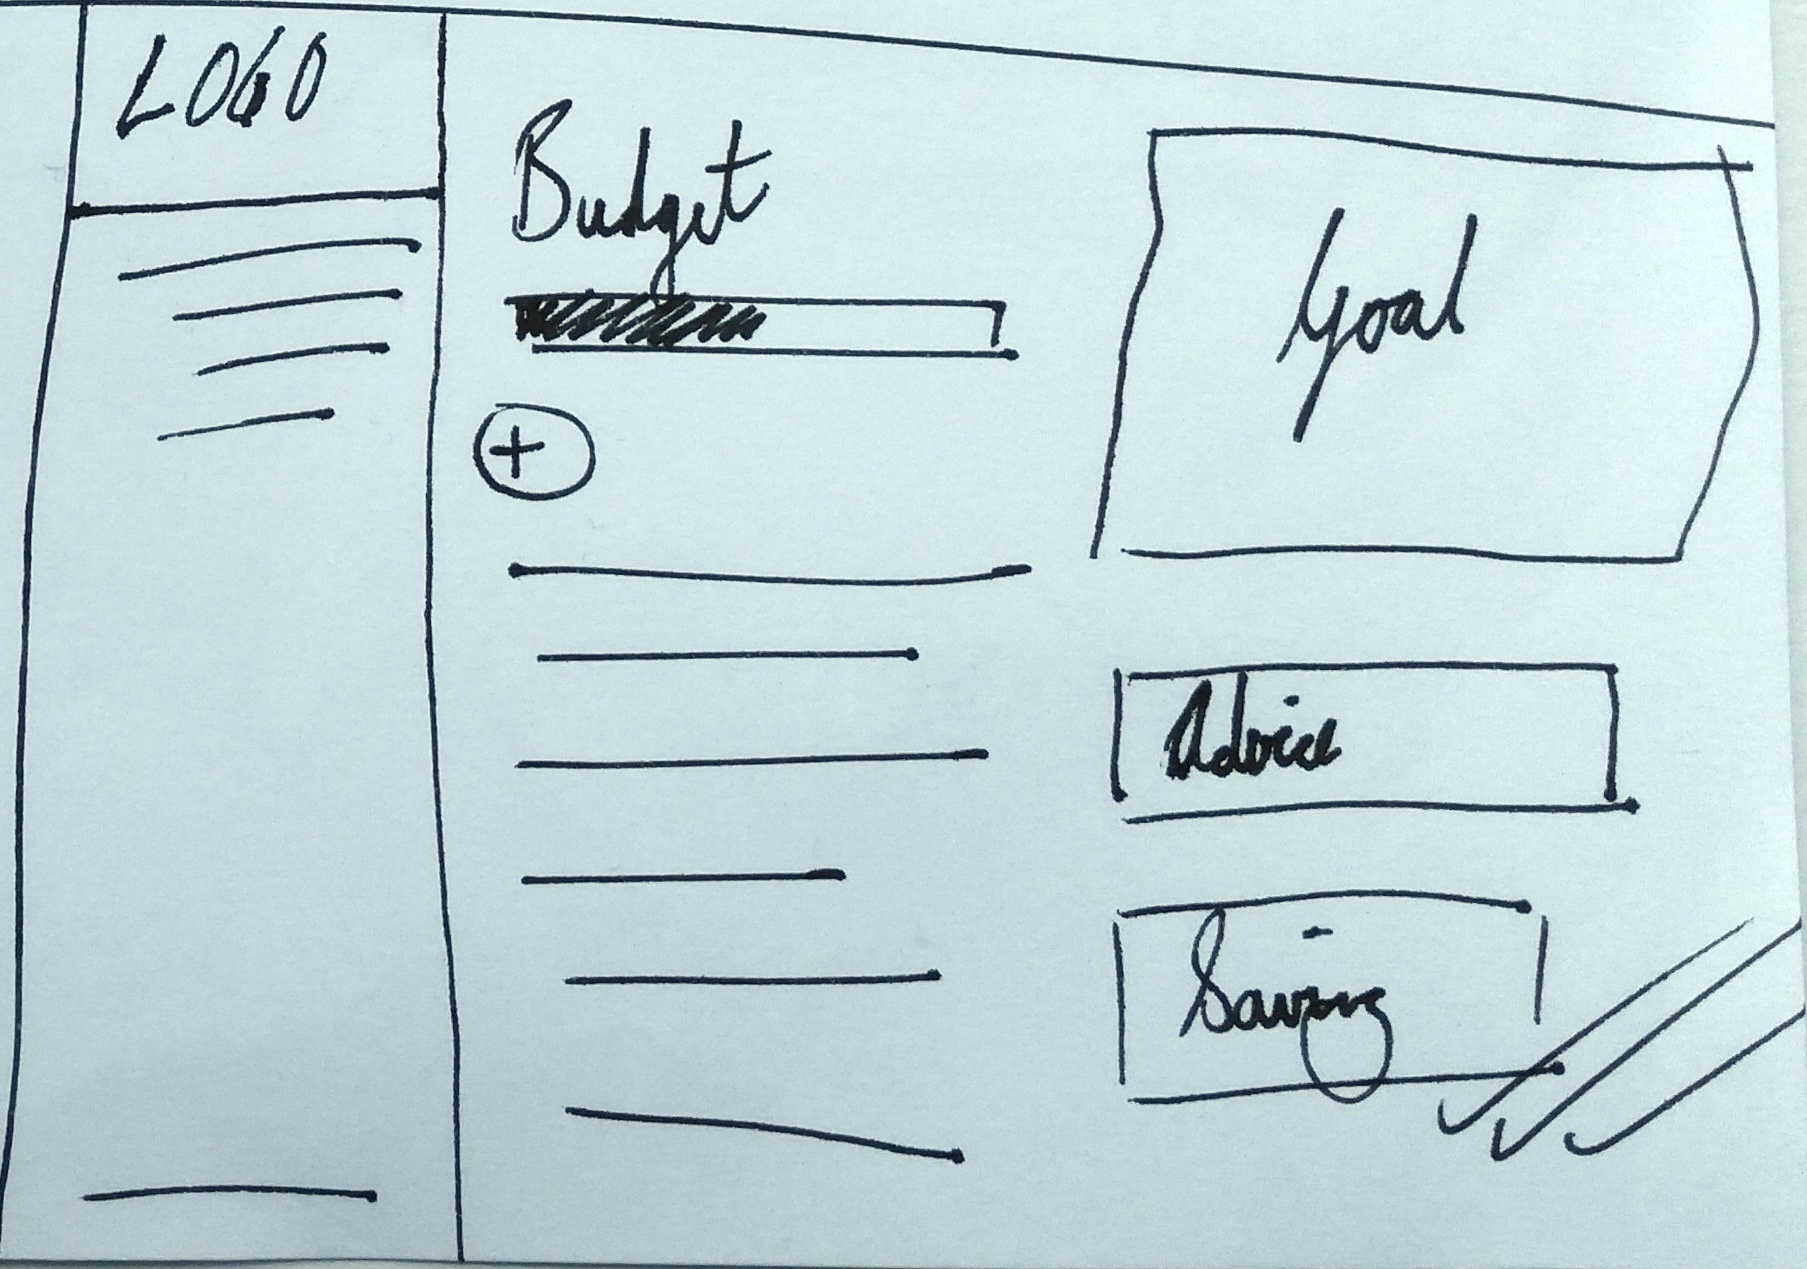 LOGO
Budget
+
Goal
Advice
Saving